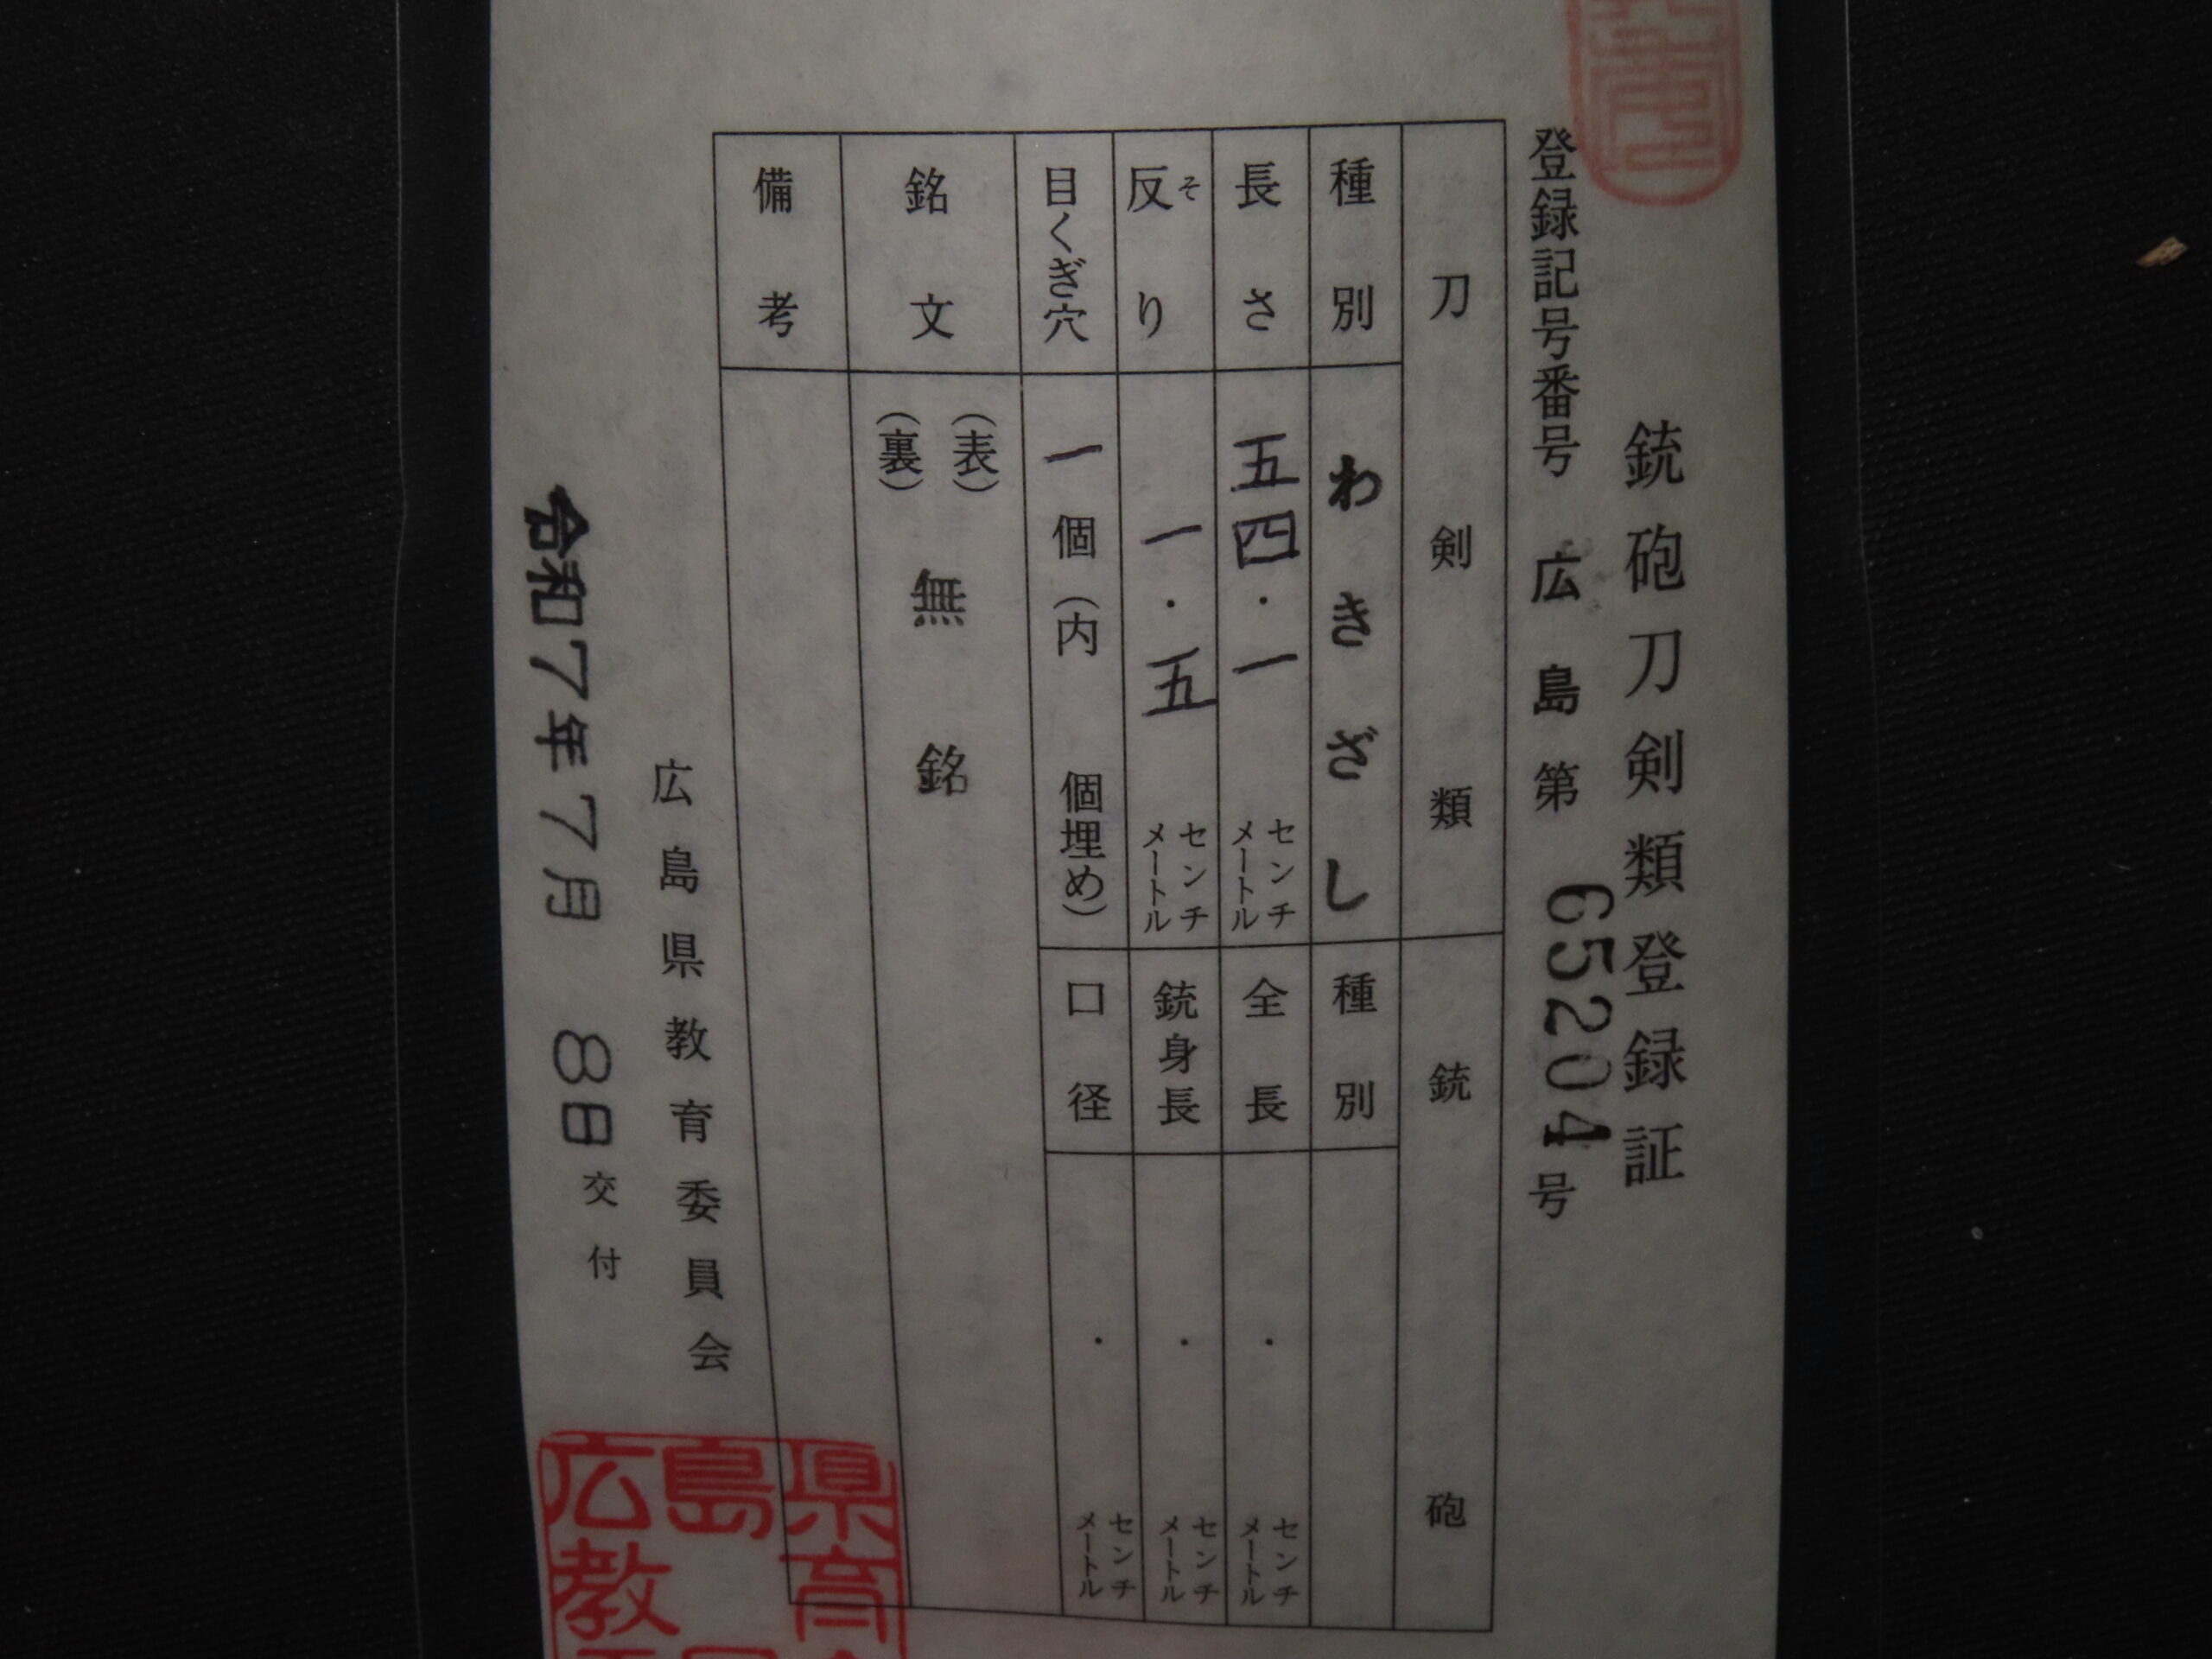 銃砲刀剣類登録証
登録記号番号 広島第 65204号
刀剣類
種別 わきざし
長さ 五四・一 センチメートル
反り そ 一・五 センチメートル
目くぎ穴 一個(内 個埋め)
銘文 (表) (裏) 無銘
備考
銃砲
種別
全長 ・ センチメートル
銃身長 ・ センチメートル
口径 ・ センチメートル
広島県教育委員会
令和7年7月 8日交付
広島県
教育